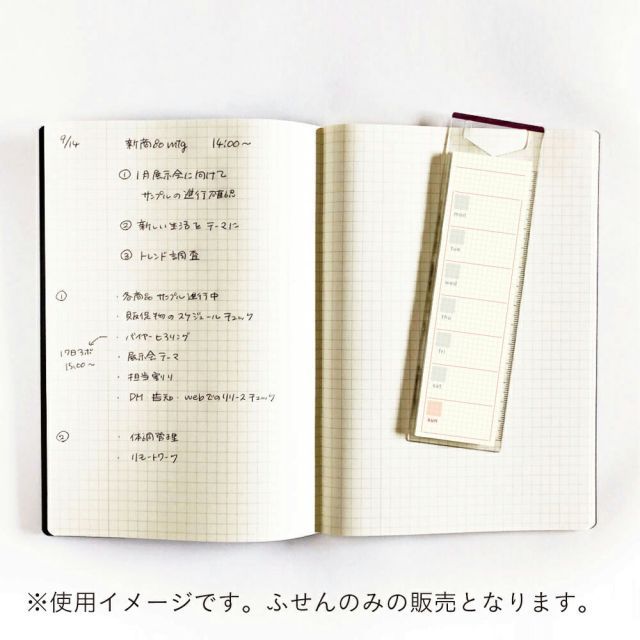 9/14 新商品mtg 14:00〜
① 1月展示会に向けて
サンプルの進行確認
② 新しい生活をテーマに
③ トレンド調査
① ・各商品サンプル進行中
・販促物のスケジュールチェック
・バイヤーヒアリング
17日
15:00〜
・展示会テーマ
・担当割り
・DM 告知・webでのリリースチェック
② ・体調管理
・リモートワーク
mon
tue
wed
thu
fri
sat
sun
※使用イメージです。ふせんのみの販売となります。